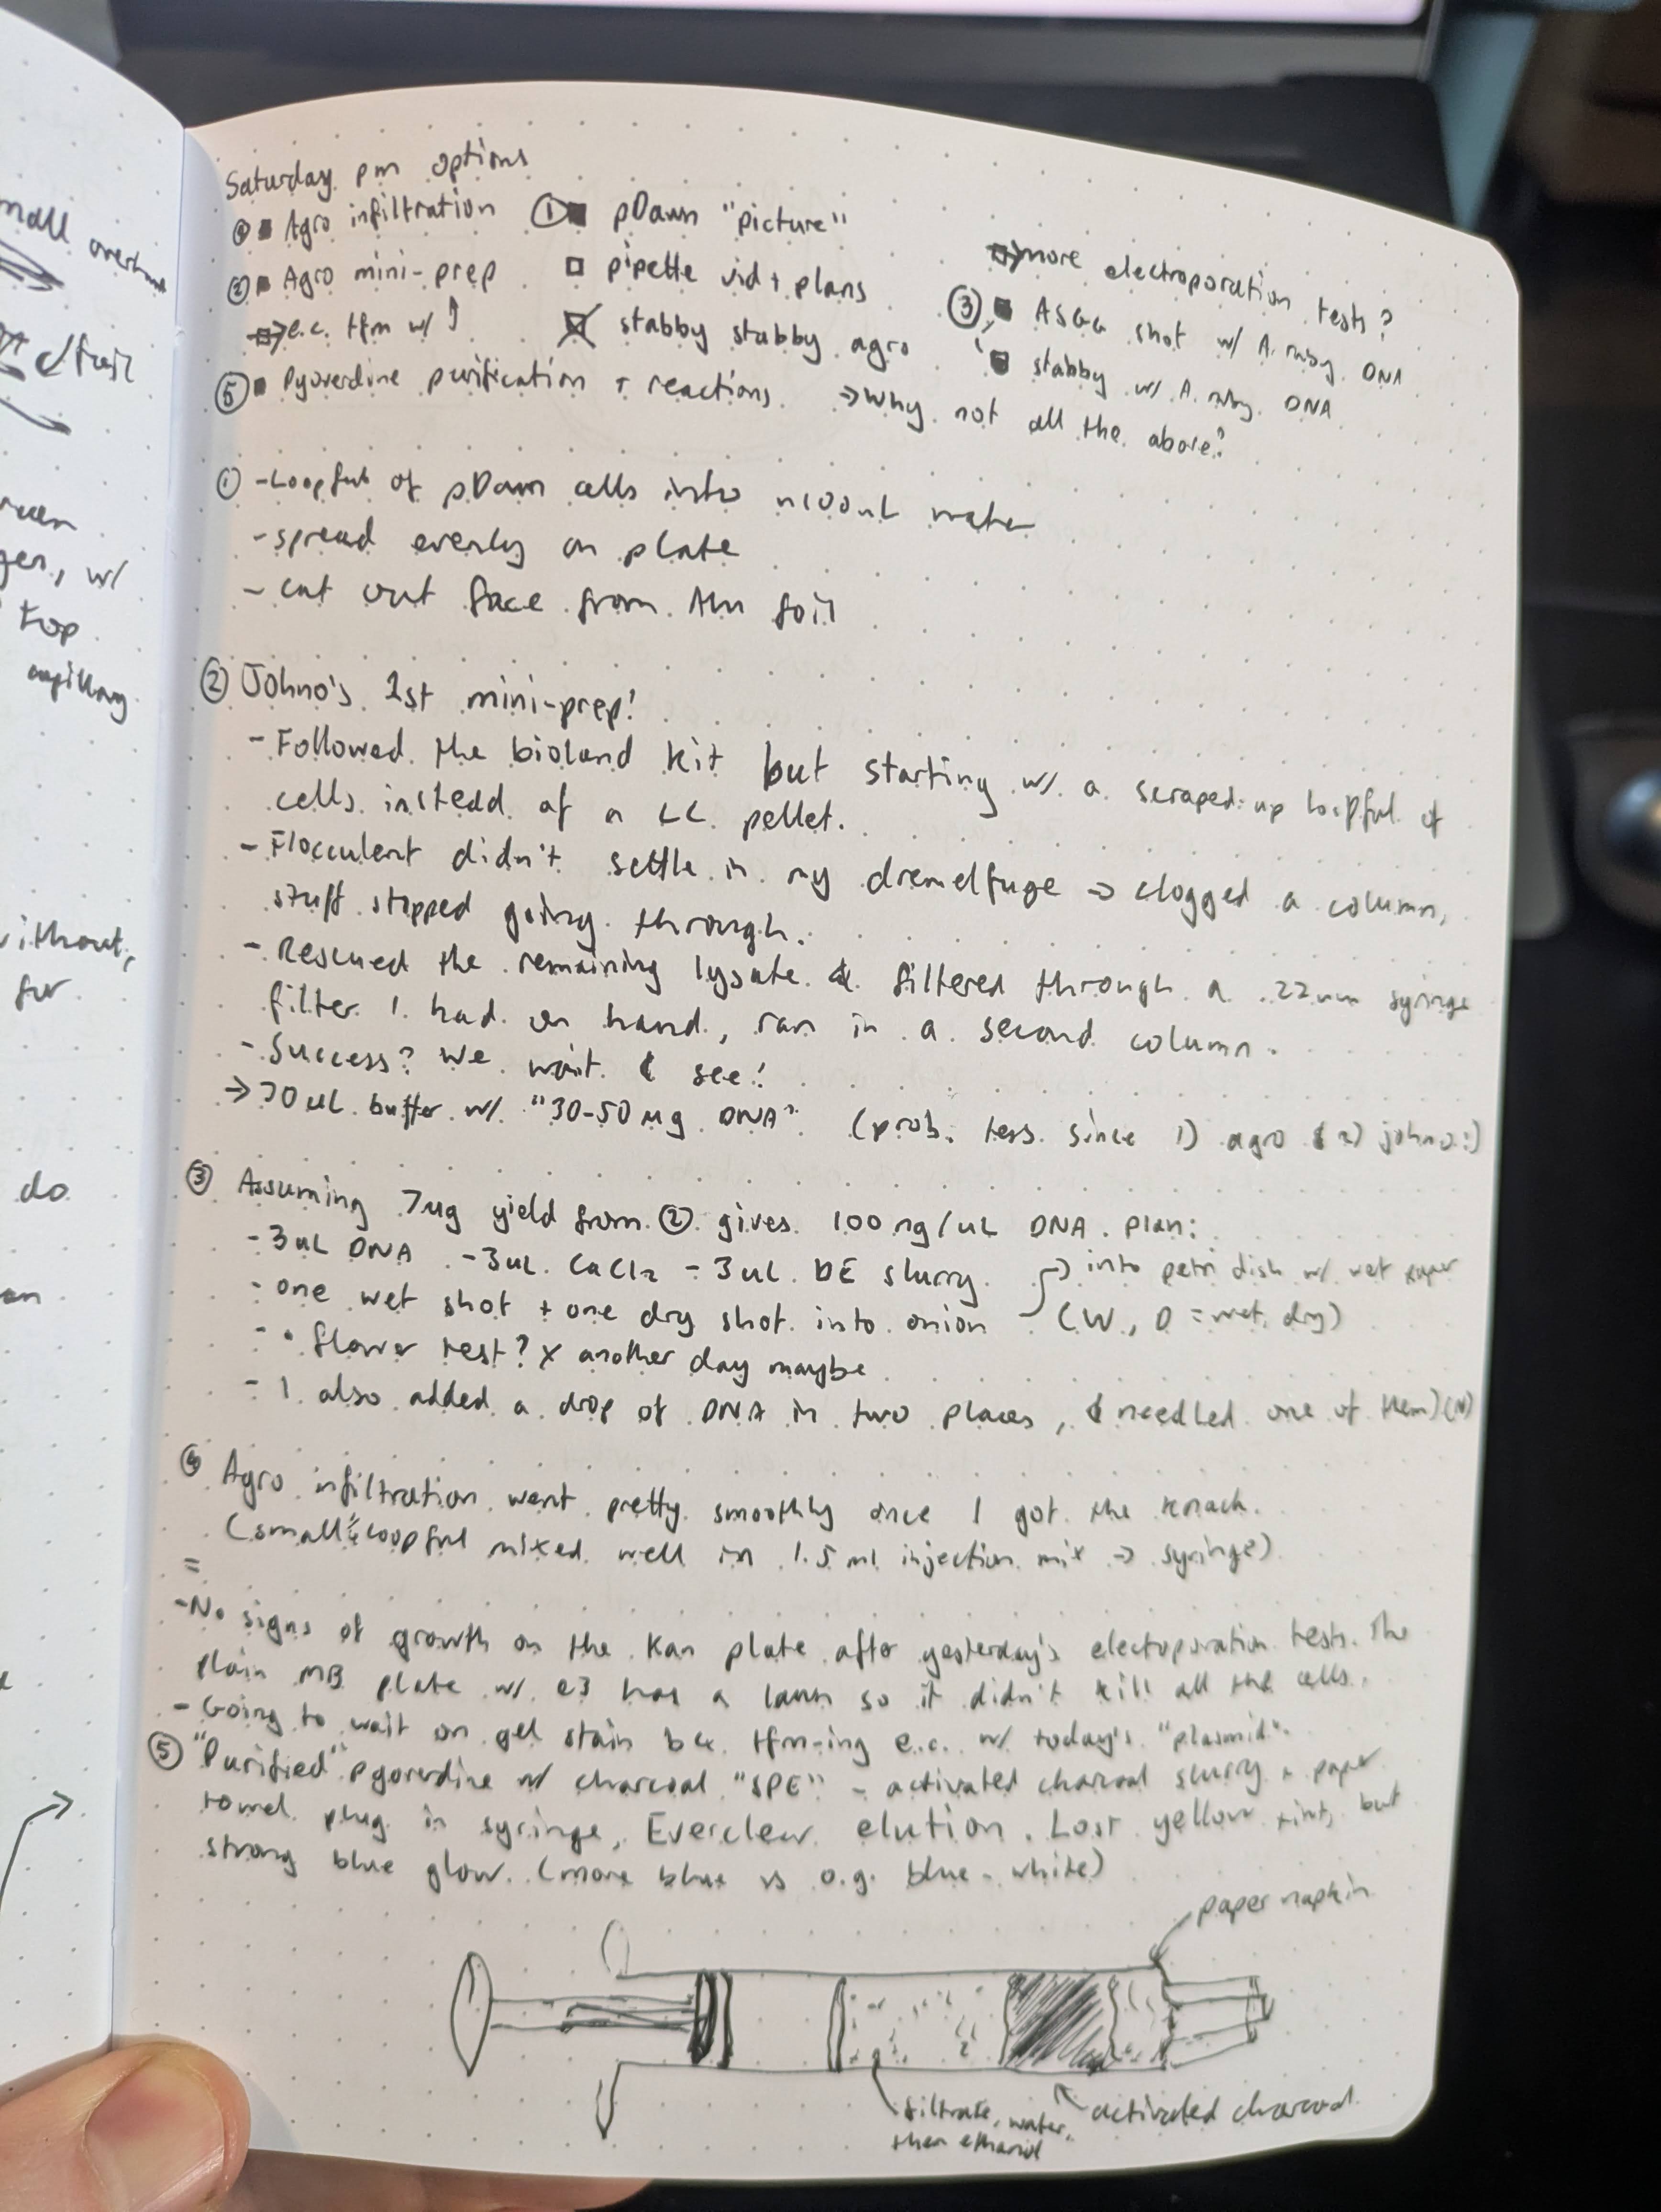 small overhang
/foil
ges, w/
top
capillary
without,
for
do
Saturday pm options
④ Agro infiltration
② Agro mini-prep
e.c. tfm w/ ↑
⑤ Pyoverdine purification + reactions.
① pDawn "picture"
pipette vid + plans
stabby stabby agro
→ why not all the above?
more electroporation tests?
③ ASGG shot w/ A. ruby DNA
stabby w/ A. ruby DNA
① - Loopful of pDawn cells into ~100uL water
- spread evenly on plate
- cut out face from Alu foil
② Johno's 1st mini-prep!
- Followed the bioland kit but starting w/ a scraped-up loopful of
cells instead of a pellet.
- Flocculent didn't settle in my dremelfuge → clogged a column,
stuff stopped going through.
- Rescued the remaining lysate & filtered through a .22um syringe
filter I had on hand, ran in a second column.
- Success? We wait & see!
→ 70uL buffer w/ "30-50ug DNA" (prob. less since 1) agro & 2) johno:)
③ Assuming 7ug yield from ② gives 100ng/uL DNA. Plan:
- 3uL DNA - 3uL CaCl2 - 3uL DE slurry
- one wet shot + one dry shot into onion
→ into petri dish w/ wet paper
(W, D = wet, dry)
- • flower test? x another day maybe
- I also added a drop of DNA in two places, & needled one of them) (N)
④ Agro infiltration went pretty smoothly once I got the knack.
(small loopful mixed well in 1.5ml injection mix → syringe)
=
- No signs of growth on the Kan plate after yesterday's electoporation tests. The
plain MB plate w/ e3 has a lawn so it didn't kill all the cells.
- Going to wait on gel stain b4 tfm-ing e.c. w/ today's "plasmid".
⑤ "Purified" pyoverdine w/ charcoal "SPE" - activated charcoal slurry + paper
towel plug in syringe, Everclear elution. Lost yellow tint, but
strong blue glow. (more blue vs o.g. blue-white)
paper napkin
activated charcoal
filtrate, water,
then ethanol